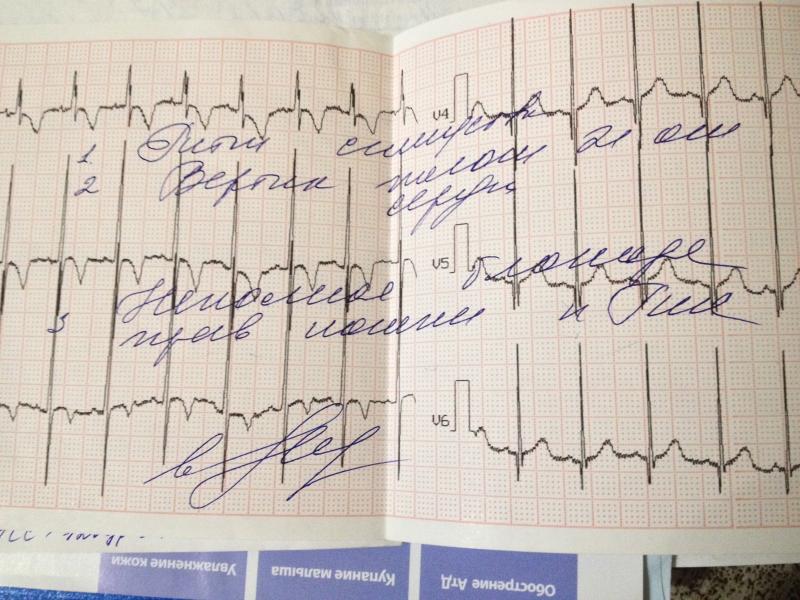 V4
1 Ритм синусов
2 Вертик полож эл оси
сердца
V5
3 Неполная блокада
прав ножки п Гиса
V6
Увлажнение кожи
Купание малыша
Обострение АтД